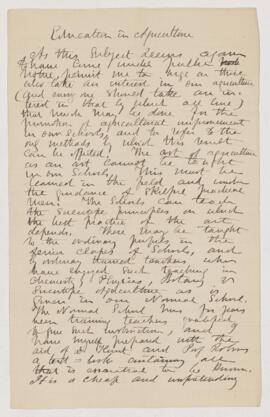 Education in Agriculture
As this subject seems again
to have come under public
notice, permit me to urge on those
who take an interest in our agriculture
(and surely we should take an in-
terest in that by which all live)
that much may be done for the
promotion of agricultural improvement
in our schools, and to refer to the
only methods by which this must
can be effected. The art of agriculture
as an art cannot be taught
in our schools. This must be
learned in the field and under
the guidance of skilful practical
men. The schools can teach
the scientific principles on which
the best practice of the art
depends. These may be taught
to the ordinary pupils in the
senior classes of schools, and
by ordinary trained teachers, when
have enjoyed such teaching in
Chemistry, Physics, Botany &
Scientific agriculture as is
given in our Normal School.
The Normal School has for years
been training teachers qualified
to give such instruction, and I
have myself prepared with the
aid of Dr and Prof
a text-book containing all
that is essential to be known.
It is a cheap and unpretending